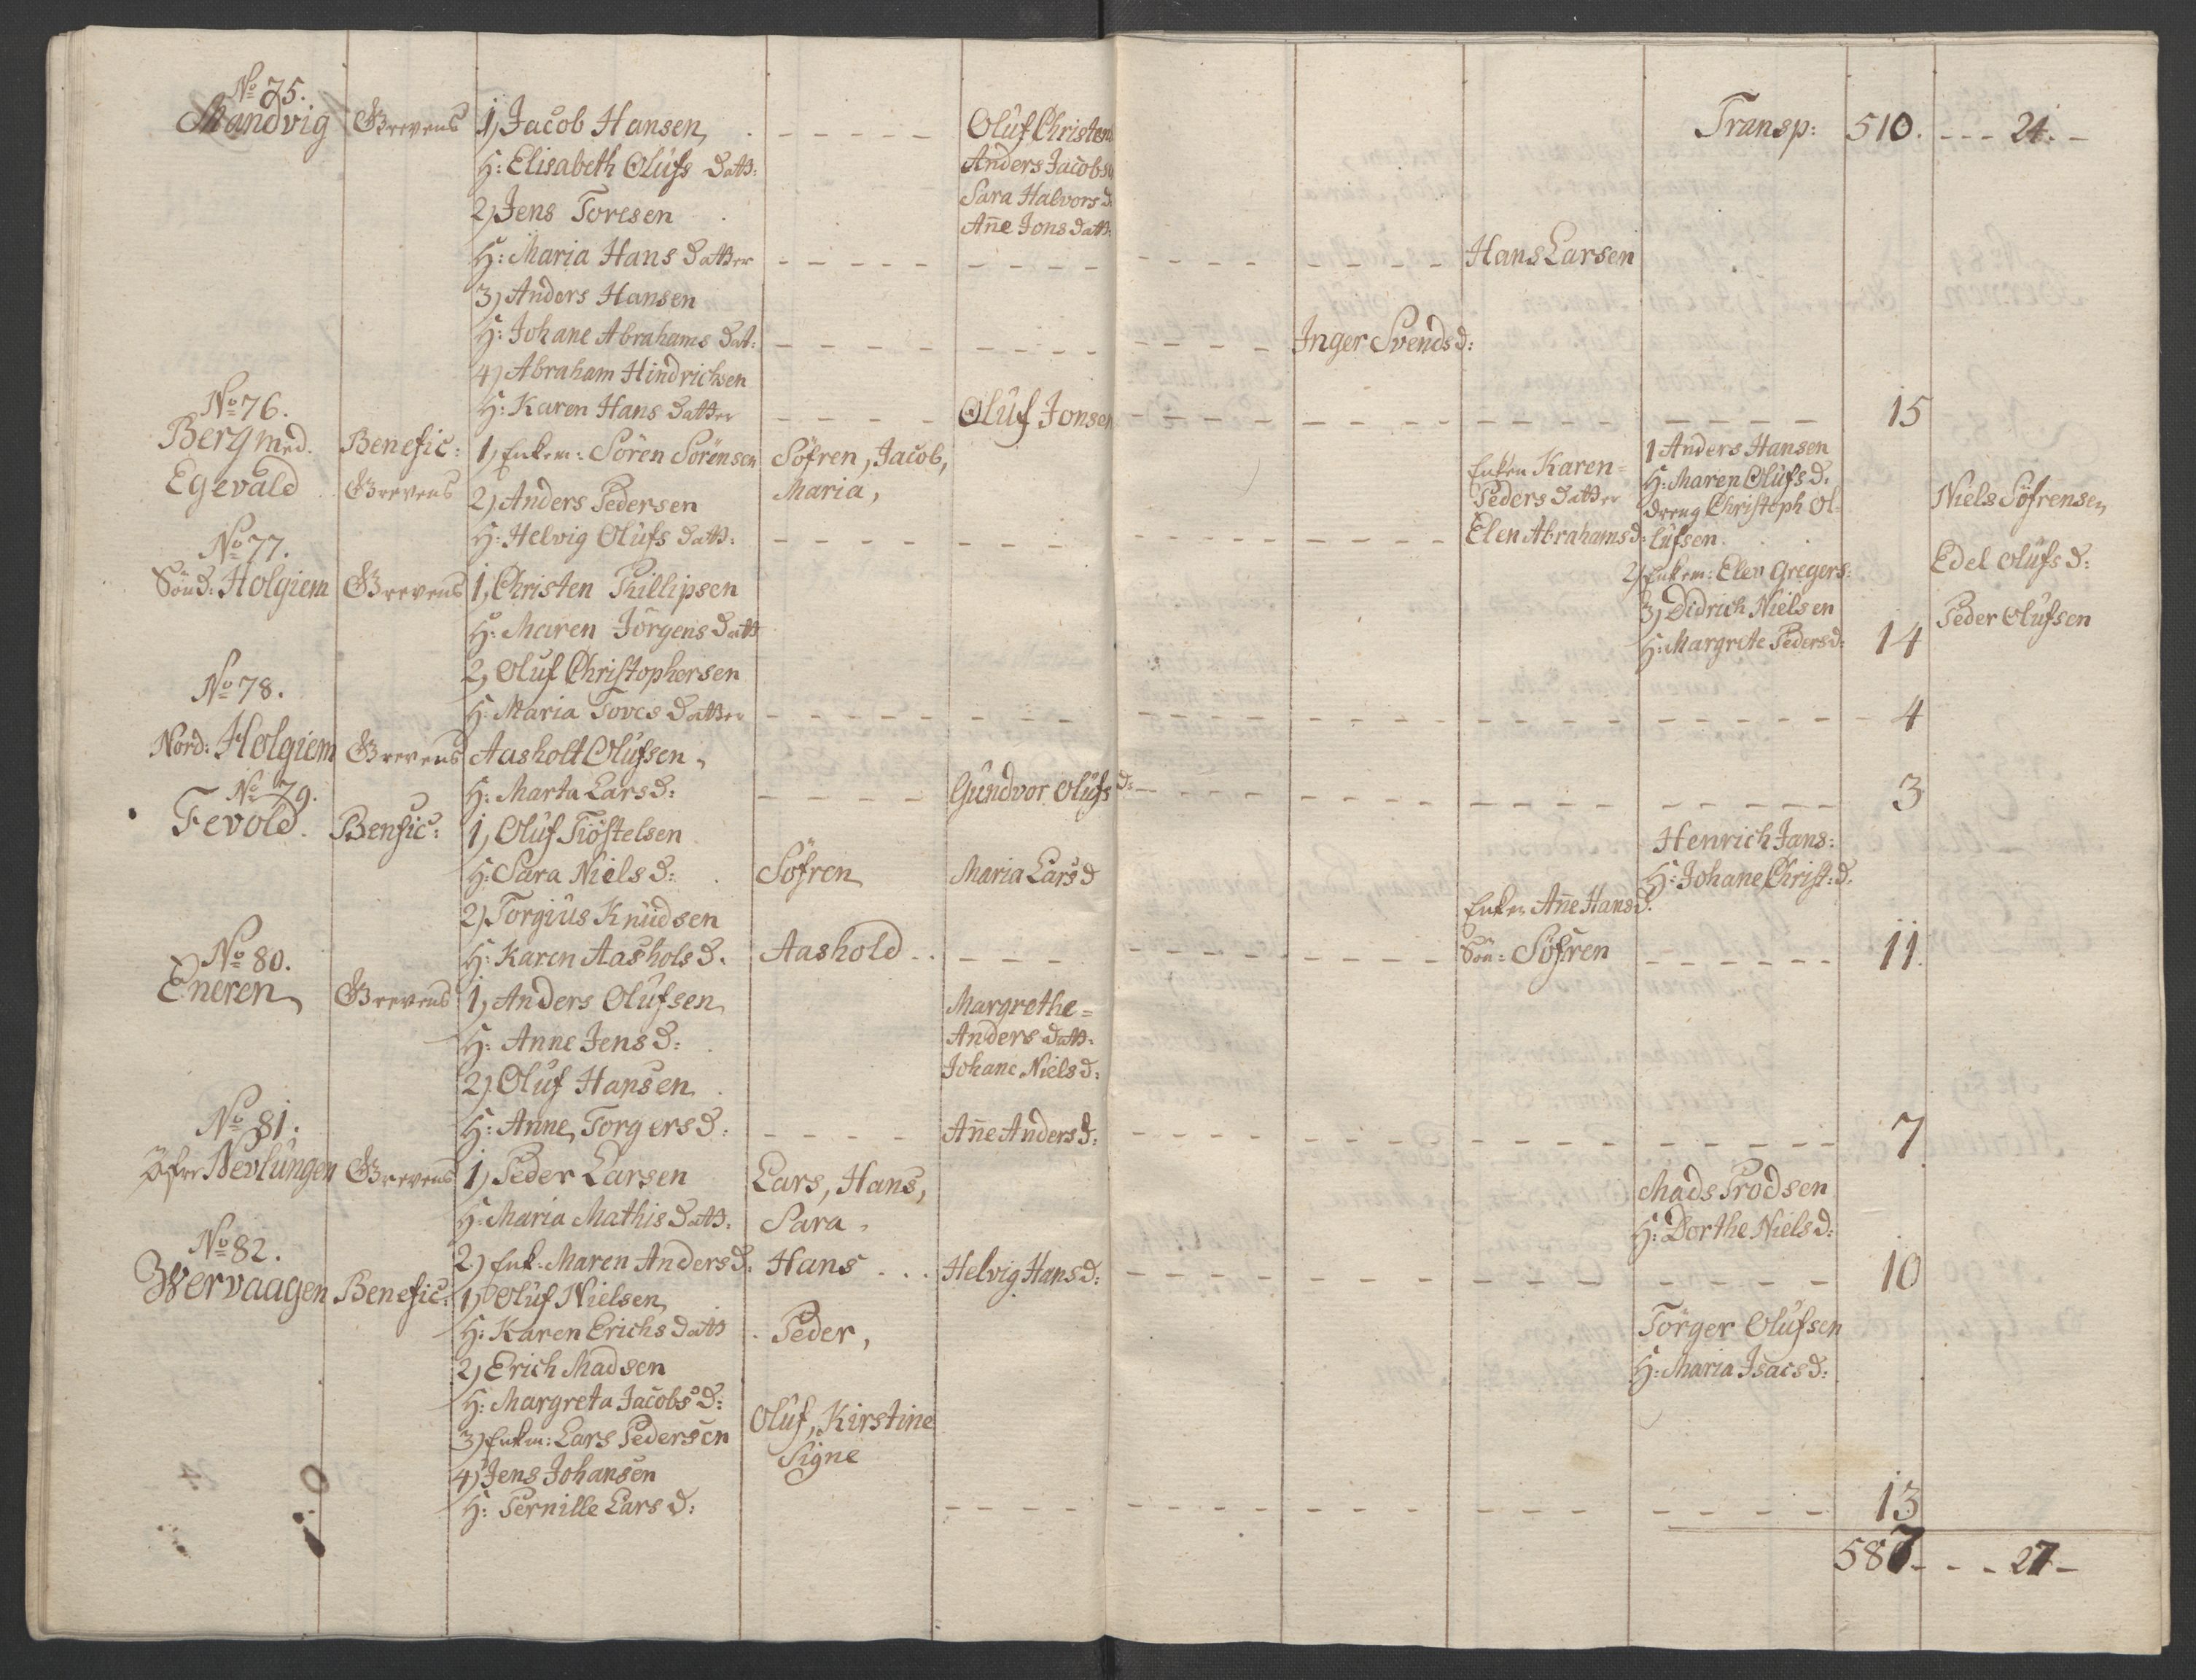 Transp: 510. - - - 24. -
No 75.
Mandvig Grevens 1, Jacob Hansen, - - - - - Oluf Christens
H: Elisabeth Olufs Datt: Anders Jacobs
2, Jens Toresen Sara Halvors d:
Añe Jons datt:
H: Maria Hans Datter - - - - - - - - - - Hans Larsen
3) Anders Hansen
H: Johane Abrahams Dat: - - - - - - - - - - Inger Svends d:
4) Abraham Hindrichsen
H: Karen Hans Datter - - - - Oluf Jonsen - - - - - - - - - - 15
No 76.
Berg med. Benefic: 1, Enkem: Sören Sörensen Söfren, Jacob, Enken Karen= 1 Anders Hansen
Egevald Grevens 2) Anders Pedersen Maria, Peders datter H: Maren Olufs d: Niels Söfrensen
H: Helvig Olufs Datt: - - - - - - - - - - Elen Abrahams d: dreng Christoph Ol-
lufsen. Edel Olufs d:
2) Enkem: Elev Gregers: Peder Olufsen
3) Didrich Nielsen
H: Margrete Peders d: 14
No 77.
Sönd: Holgiem Grevens 1, Christen Phillipsen
H: Maren Jörgens Datt
2, Oluf Christophersen
H: Maria Toves Datter - - - - - - - - - - 4
No 78.
Nord: Holgiem Grevens Aasholt Olufsen,
H: Marta Lars d: - - - - Gundvor Olufs d: - - - - - - - - - - 3
No 79.
Fevold. Benfic: 1, Oluf Tiöstelsen Henrich Jans:
H: Sara Niels d: Söfren Maria Lars d H: Johane Christ: d.
2) Torgius Knudsen Enken Añe Hans d.
H: Karen Aashols d. Aashold . . - - - - - - - - - - Sön= Söfren - - - - - - 11.
No 80.
Eneren Grevens 1, Anders Olufsen, Margrethe=
H: Anne Jens d: Anders datt:
2) Oluf Hansen Johane Niels d:
H: Anne Torgers d: - - - - Añe Anders d: - - - - - - - - - - 7
No 81.
Öfre Nevlungen Grevens 1, Peder Larsen Lars, Hans, Mads Trodsen
H: Maria Mathis datt: Sara, H: Dorthe Niels d:
2) Enk: Maren Anders d: Hans . . . Helvig Hans d: - - - - - - - - - - 10
No 82.
Wervaagen Benefic: 1, Oluf Nielsen, Törger Olufsen
H: Karen Erichs datt Peder, H: Maria Isacs d:
2) Erich Madsen
H: Margreta Jacobs d:
3) Enkm: Lars Pedersen Oluf, Kirstine
4) Jens Johansen Signe
H: Pernille Lars d: - - - - - - - - - - 13
587 - - - 27 -